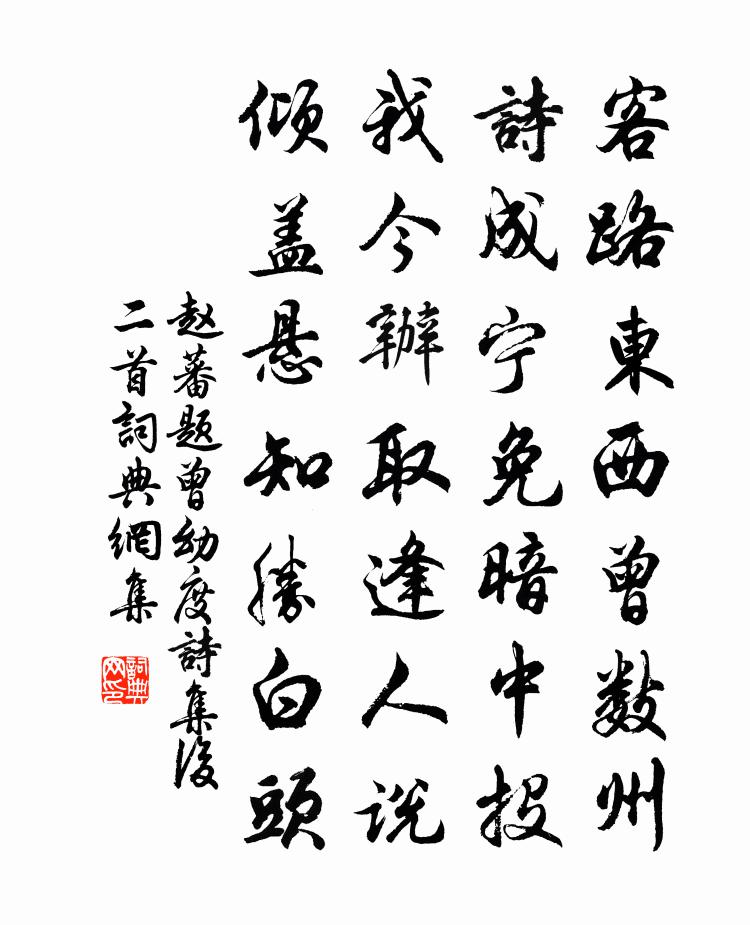 客路東西曾数州
詩成宁免暗中投
我今辦取逢人说
倾盖悬知勝白頭
赵蕃题曾幼度詩集後
二首詞典網集
詞典网印